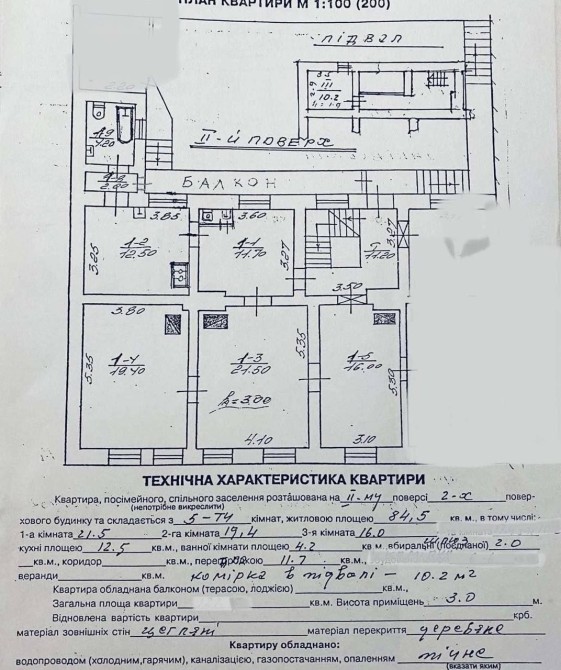 ПЛАН КВАРТИРИ М 1:100 (200)
ПІДВАЛ
3.5
2.9
III
10.2
II-Й ПОВЕРХ
1-9
4.20
2.00
БАЛКОН
3.85
3.60
3.25
1-2
12.50
1-1
11.70
3.27
I
11.20
3.27
3.50
3.80
5.35
1-4
19.40
1-3
21.50
5.35
h=3.00
1-5
16.00
4.10
3.10
ТЕХНІЧНА ХАРАКТЕРИСТИКА КВАРТИРИ
Квартира, посімейного, спільного заселення розташована на II-му поверсі 2-х повер-
(непотрібне викреслити)
хового будинку та складається з 5-ТИ кімнат, житловою площею 84,5 кв. м., в тому числі:
1-а кімната 21.5 2-га кімната 19,4 3-я кімната 16.0
кухні площею 12.5 кв.м., ванної кімнати площею 4.2 кв м. вбиральні (поєднаної) 2.0
кв.м., коридор кв.м., 11.7 кв.м.,
веранди кв.м. комірка в підвалі - 10.2 м²
Квартира обладнана балконом (терасою, лоджією) кв.м.,
Загальна площа квартири кв.м. Висота приміщень 3.0 м.
Відновлена вартість квартири крб.
матеріал зовнішніх стін цегляні матеріал перекриття дерев'яне
Квартиру обладнано:
водопроводом (холодним,гарячим), каналізацією, газопостачанням, опаленням пічне
(вказати яким)